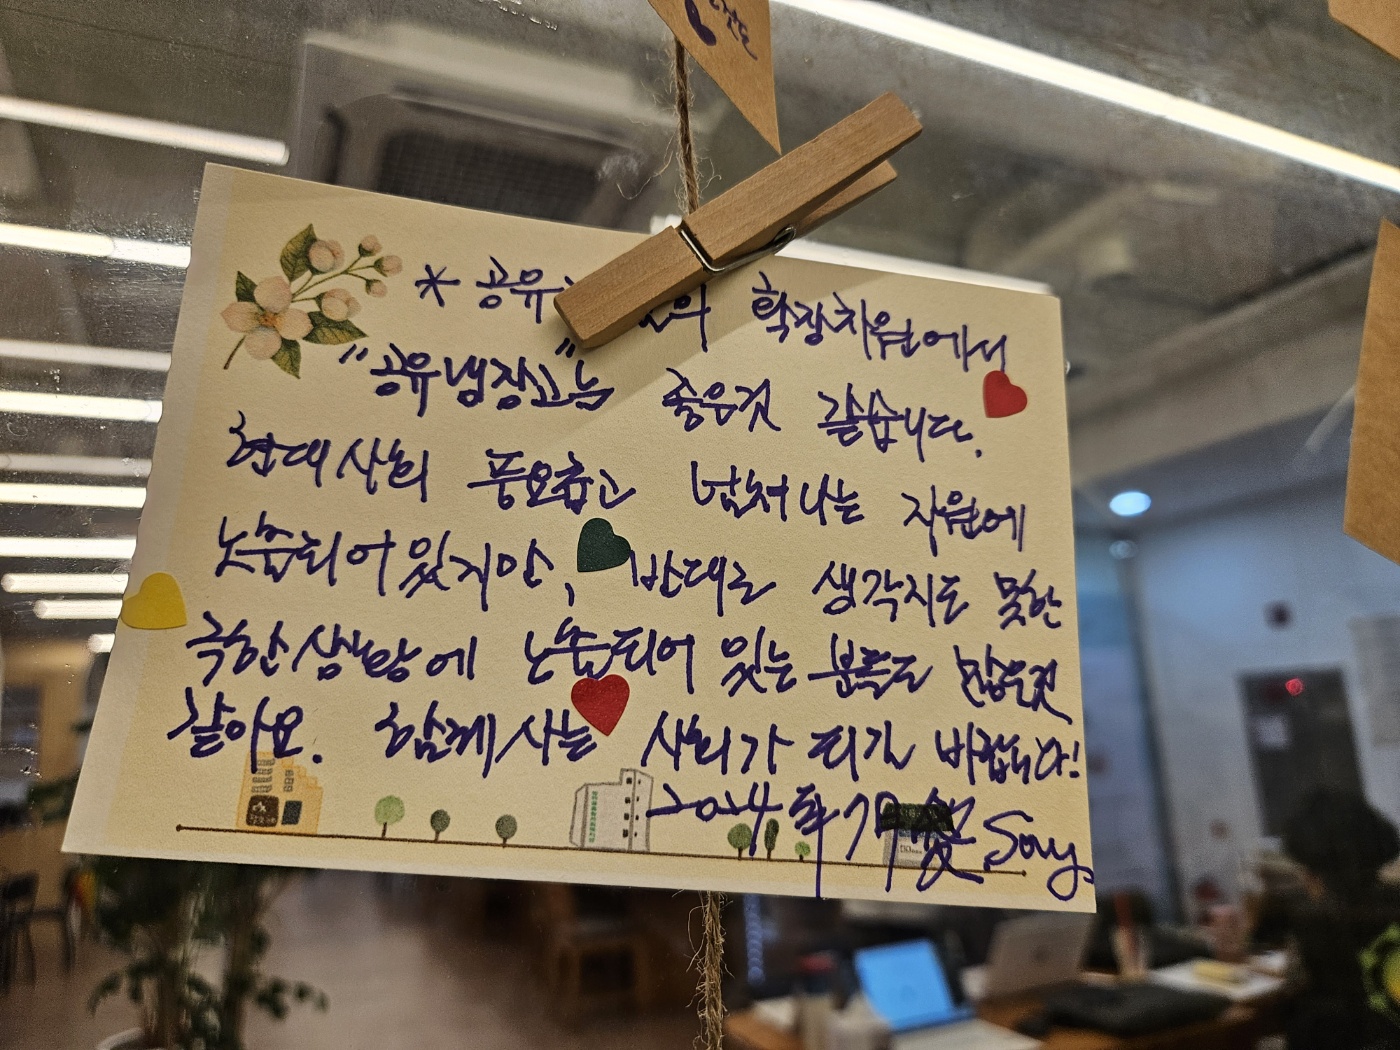 건도
* 공유 의 확장차원에서
"공유냉장고"는 좋은것 같습니다.
현대사회 풍요롭고 넘쳐나는 자원에
노출되어있지만, 반대로 생각지도 못한
극한상황에 노출되어 있는 분들도 많은것
같아요. 함께사는 사회가 되길 바랍니다!
2024 Say